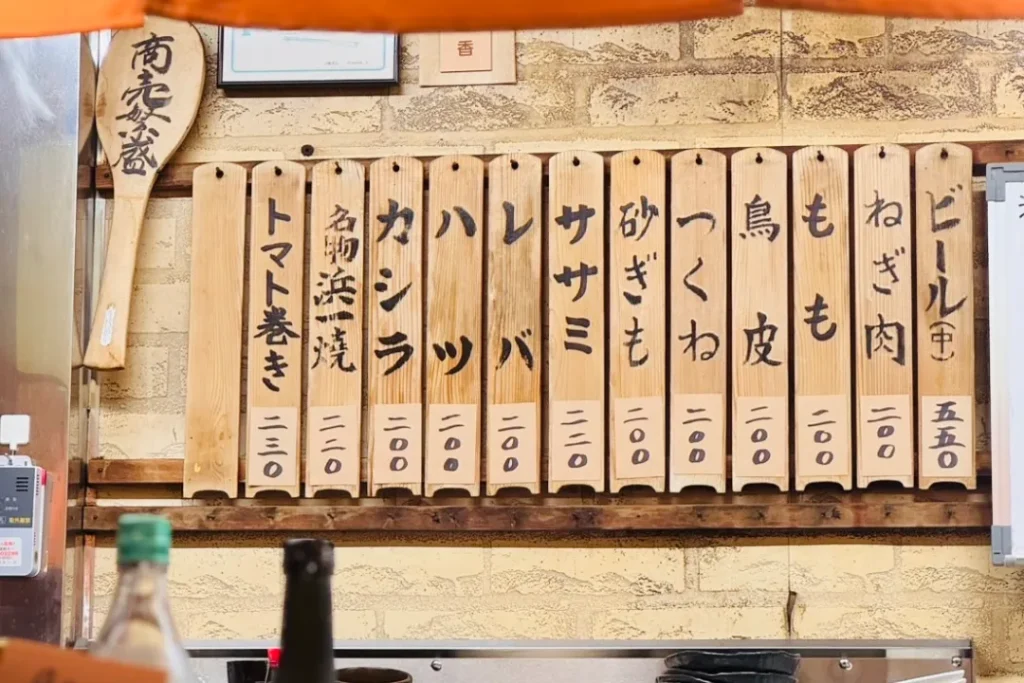 ビール(中) 五五〇
ねぎ肉 二〇〇
もも 二〇〇
鳥皮 二〇〇
つくね 二〇〇
砂ぎも 二〇〇
ササミ 二二〇
レバ 二〇〇
ハツ 二〇〇
カシラ 二〇〇
名物浜一燒 二二〇
トマト巻き 二三〇
商売繁盛
香